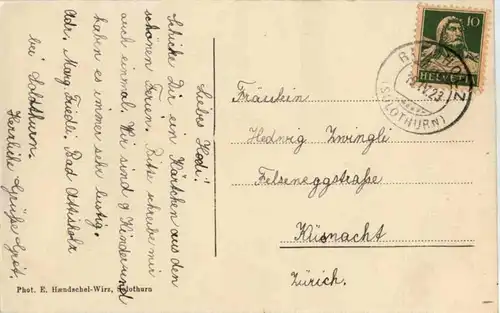 Liebes Hedi!
Schicke Dir ein Kärtchen aus den
schönen Ferien. Bitte schreibe mir
auch einmal. Wir sind 9 Kinder und
haben es immer sehr lustig.
Adr. Marg. Friedli, Bad Attisholz
bei Solothurn.
Herzliche Grüße Gret.
Phot. E. Haendschel-Wirz, Solothurn
10
HELVETIA
12.IV.23
(SOLOTHURN)
Fräulein
Hedwig Zwingli
Felseneggstraße
Küsnacht
Zürich.